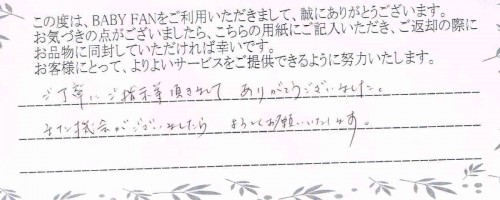 この度は、BABY FANをご利用いただきまして、誠にありがとうございます。
お気づきの点がございましたら、こちらの用紙にご記入いただき、ご返却の際に
お品物に同封していただければ幸いです。
お客様にとって、よりよいサービスをご提供できるように努力いたします。
ご丁寧にご指示等頂きまして ありがとうございました。
また機会がございましたら よろしくお願いいたします。